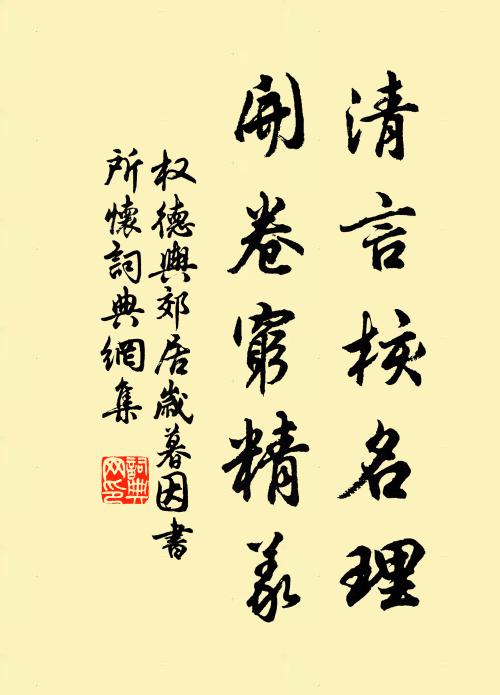 清言核名理
開卷窮精義
权德輿郊居歲暮因書
所懷詞典網集
詞典网印